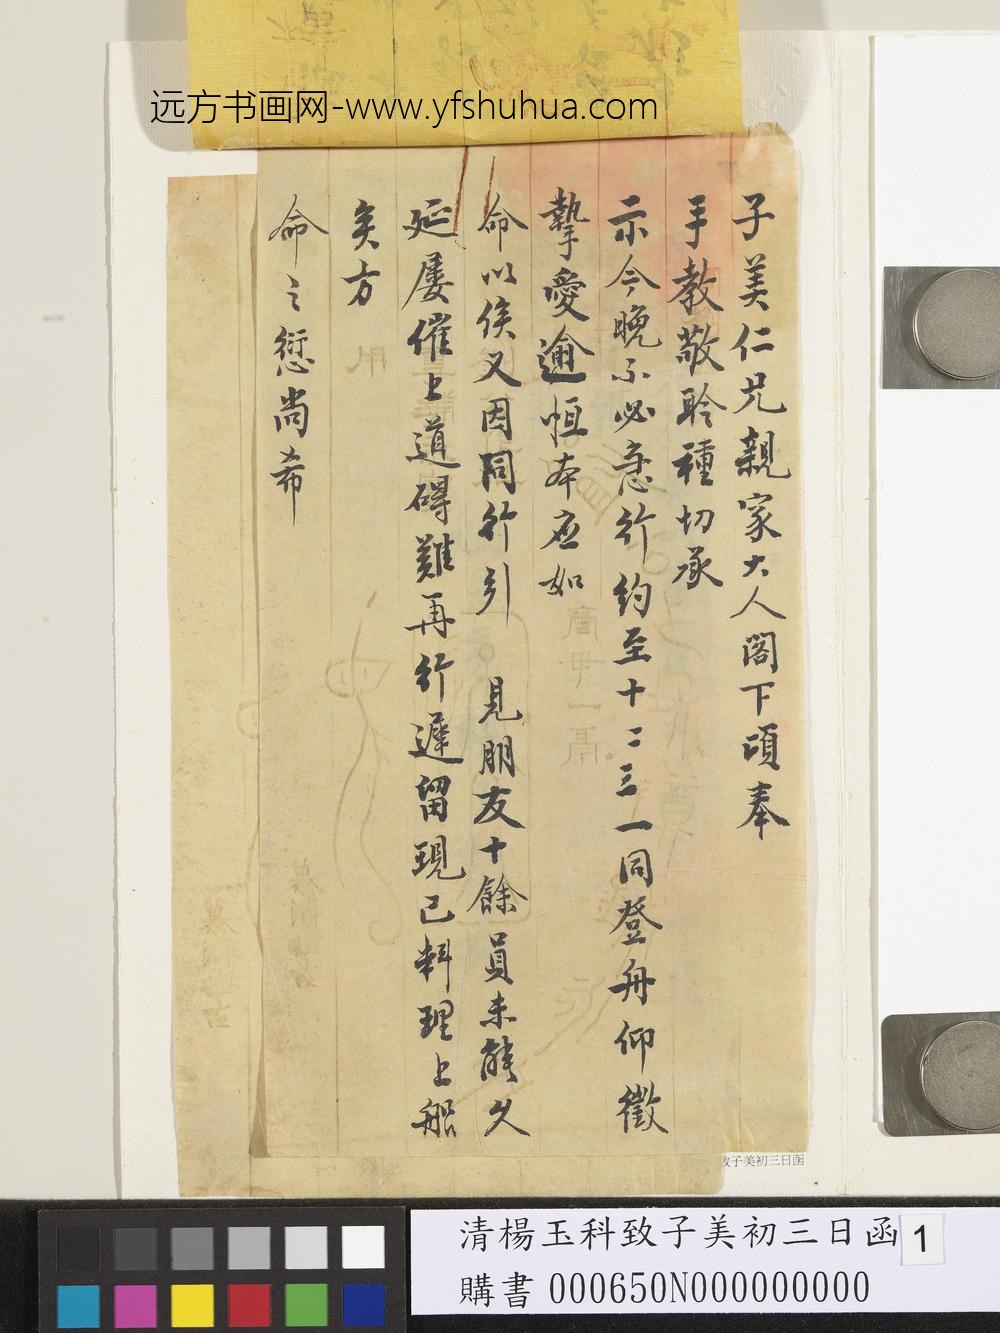 远方书画网-www.yfshuhua.com
子美仁兄親家大人閣下頃奉
手教敬聆種切承
示今晚不必急行約至十二三一同登舟仰徵
摯愛逾恒本應如
命以俟又因同行引 見朋友十餘員未能久
延屢催上道碍難再行遲留現已料理上船
矣方
命之愆尚希
致子美初三日函
清楊玉科致子美初三日函 1
購書 000650N000000000